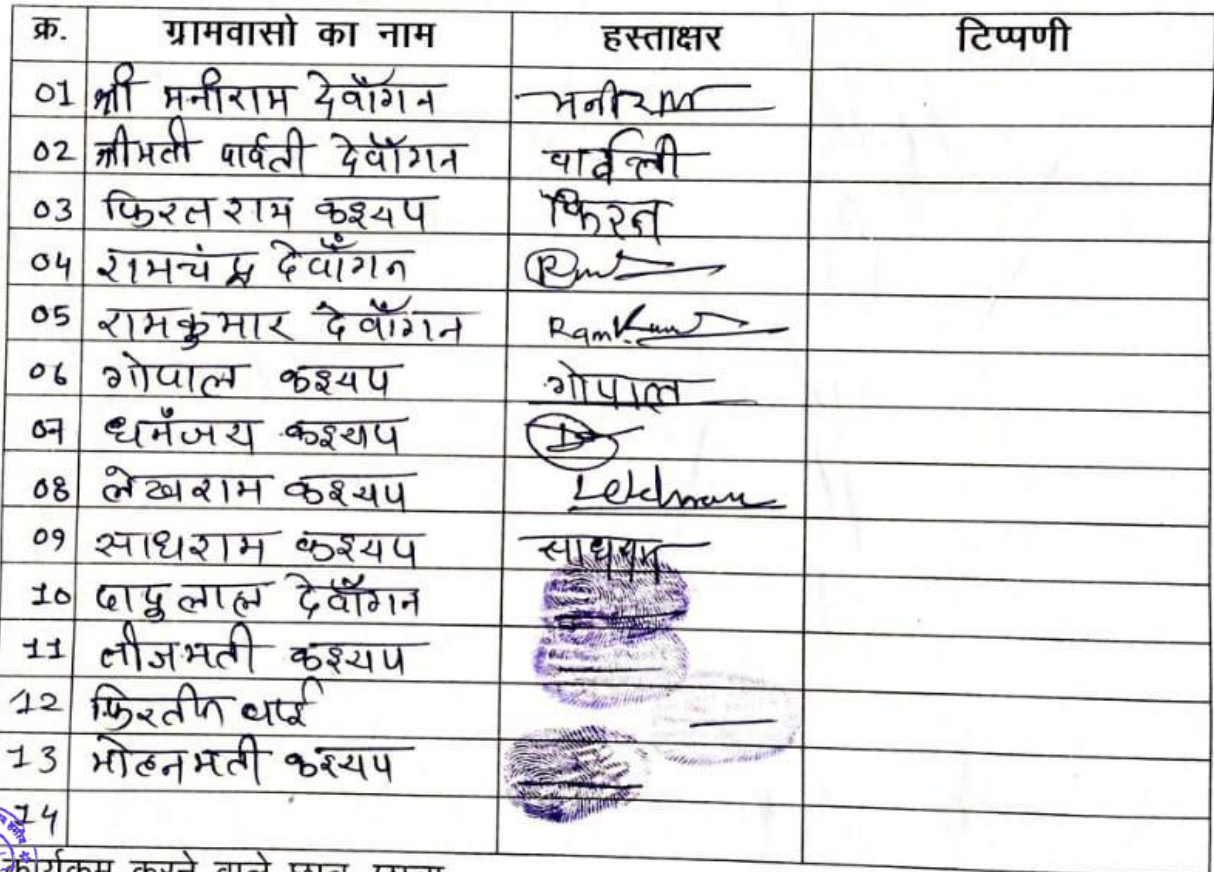 क्र. ग्रामवासो का नाम हस्ताक्षर टिप्पणी
01 श्री मनीराम देवाँगन मनीराम
02 श्रीमती पार्वती देवाँगन पार्वती
03 फिरतराम कश्यप फिरत
04 रामचंद्र देवाँगन
05 रामकुमार देवाँगन
06 गोपाल कश्यप गोपाल
07 धनंजय कश्यप
08 लेखराम कश्यप
09 साधराम कश्यप साधराम
10 लाल देवाँगन
11 तीजमती कश्यप
12 बाई
13 मोहनमती कश्यप
14
कार्यक्रम करने वाले छात्र